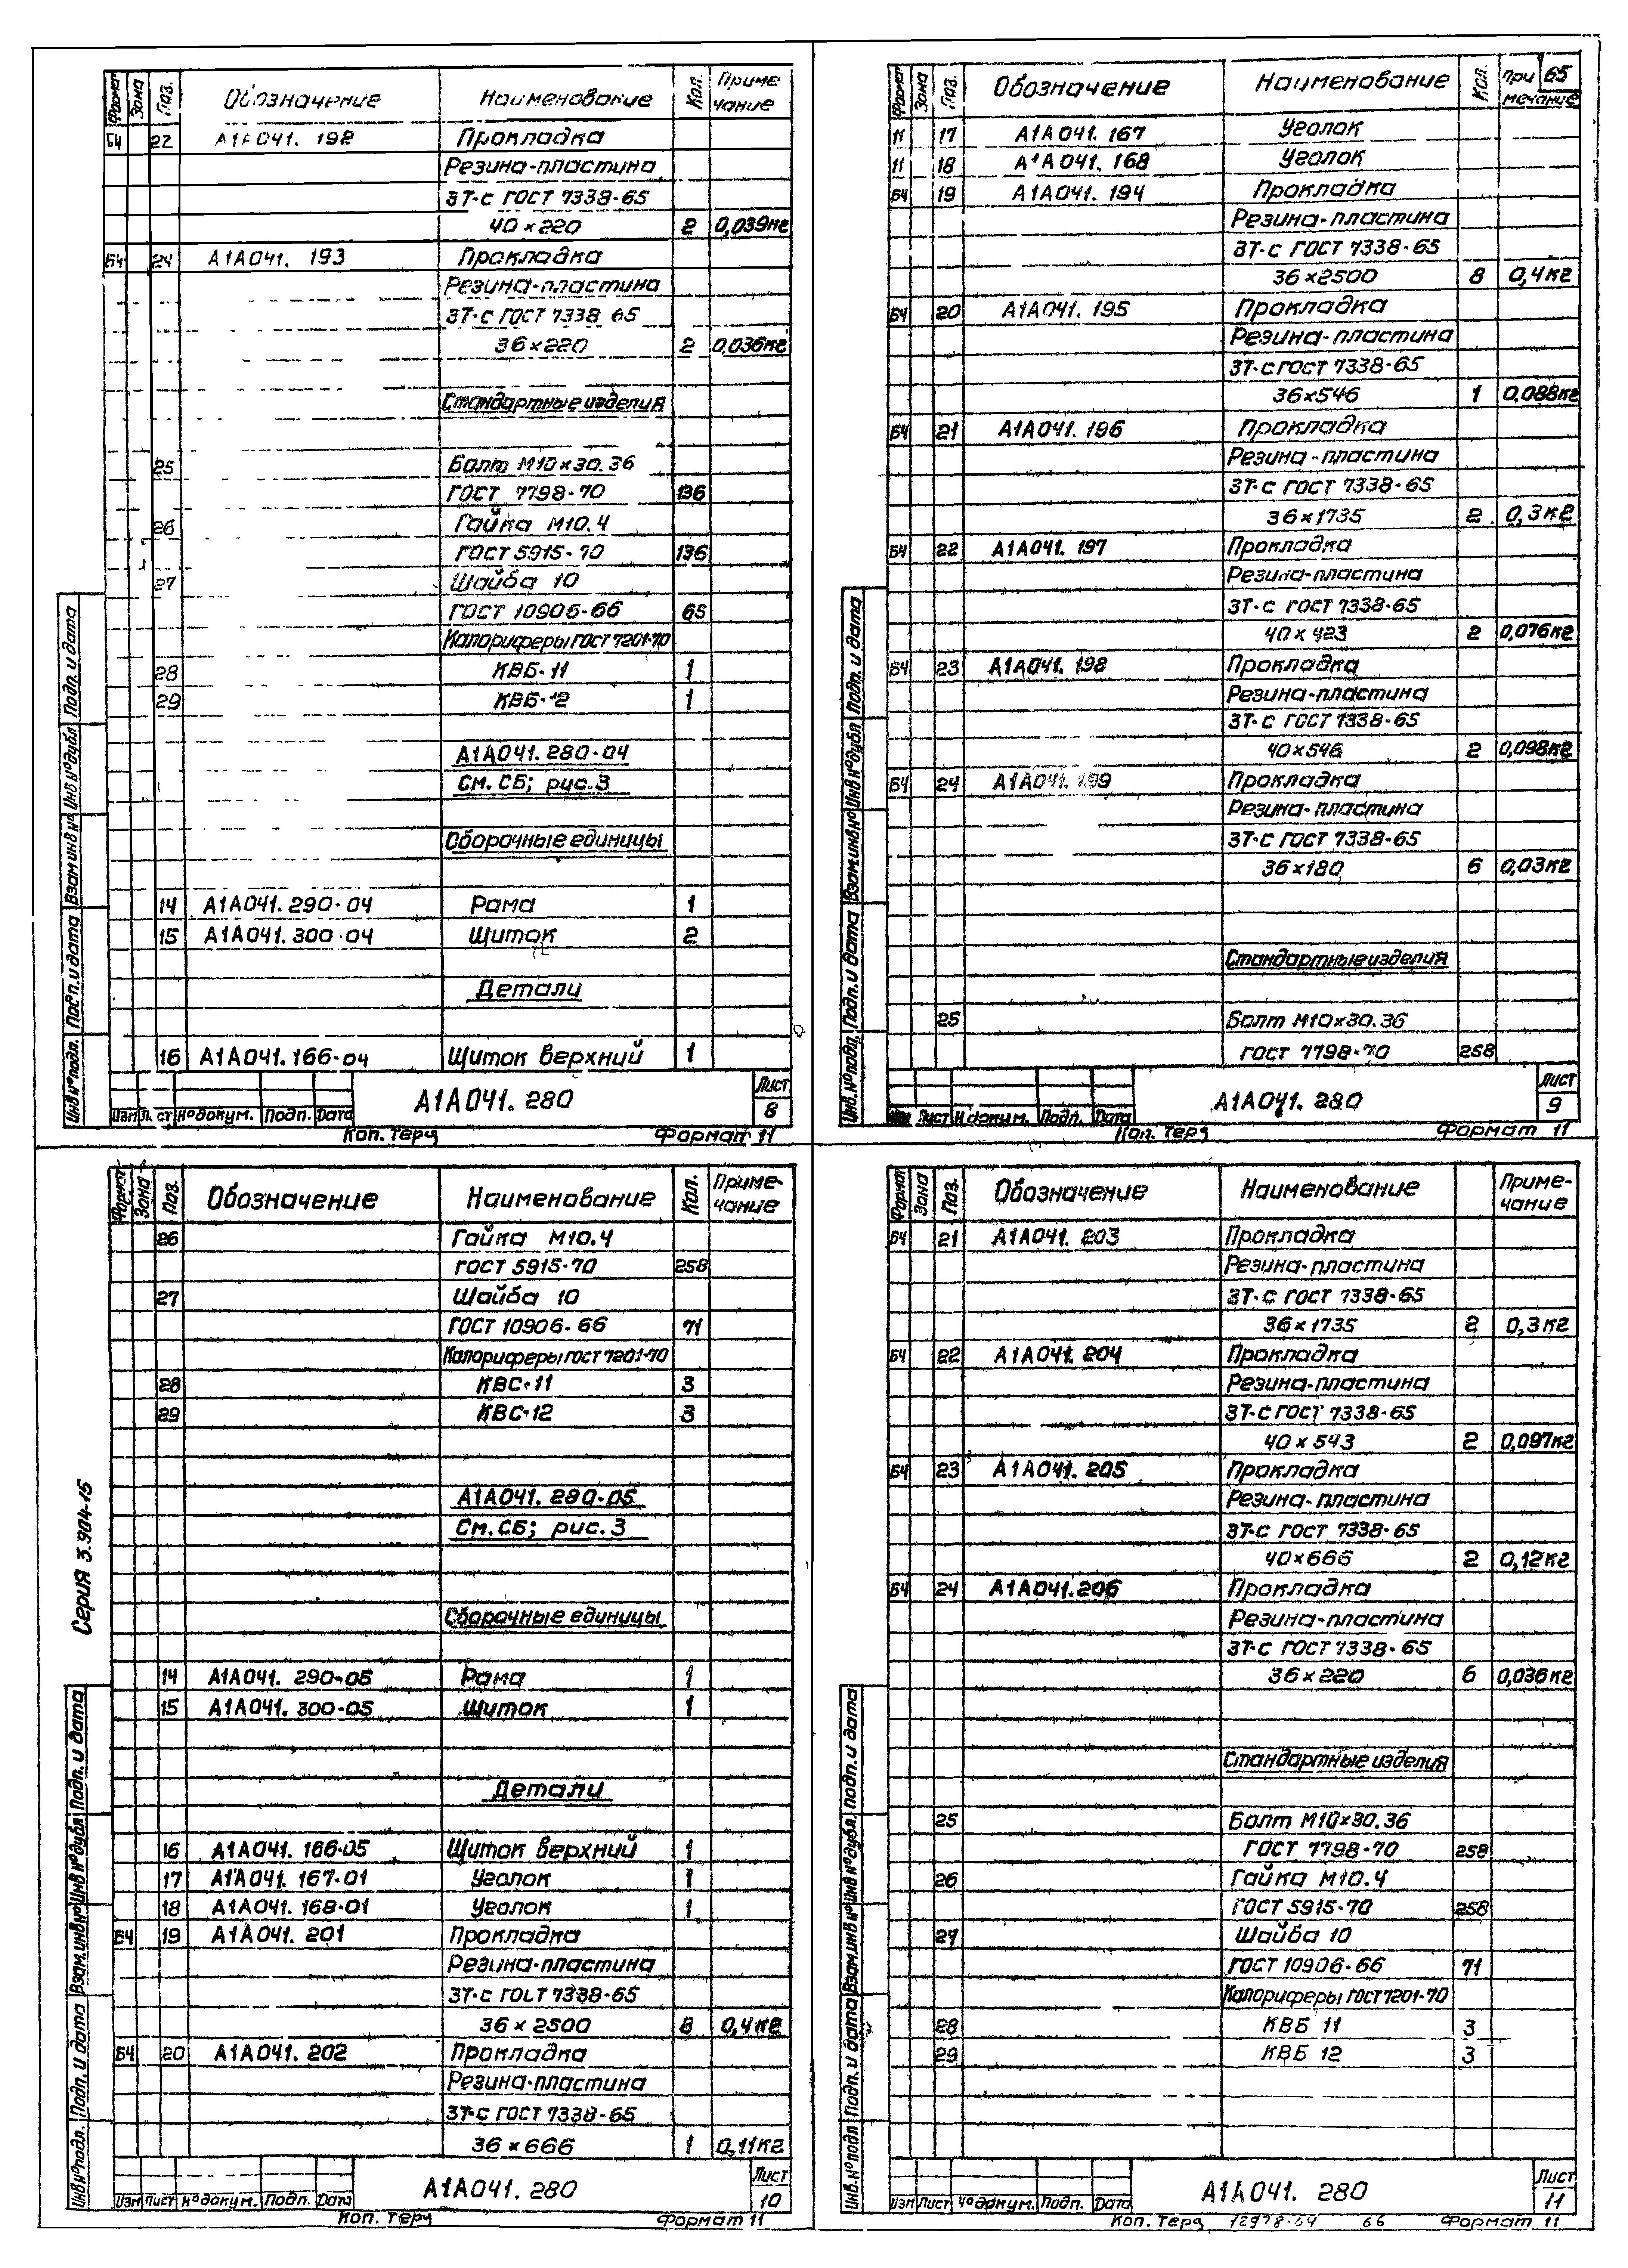 Формат Зона Поз. Обозначение Наименование Кол. Приме
чание
Б4 22 А1А041. 192 Прокладка
Резина-пластина
3Т-С ГОСТ 7338-65
40×220 2 0,039кг
Б4 24 А1А041. 193 Прокладка
Резина-пластина
3Т-С ГОСТ 7338 65
36×220 2 0,036кг
Стандартные изделия
25 Болт М10×30.36
ГОСТ 7798-70 136
26 Гайка М10.4
ГОСТ 5915-70 136
27 Шайба 10
ГОСТ 10906-66 65
Калориферы ГОСТ 7201-70
28 КВБ-11 1
29 КВБ-12 1
А1А041.280-04
См. СБ; рис.3
Сборочные единицы
14 А1А041.290-04 Рама 1
15 А1А041.300-04 Щиток 2
Детали
16 А1А041.166-04 Щиток верхний 1
Инв №подл. Подп. и дата Взам инв № Инв №дубл Подп. и дата
Изм Лист №докум. Подп. Дата А1А041. 280 Лист
8
Коп. Терц Формат 11
65
Формат Зона Поз. Обозначение Наименование Кол. При
мечание
11 17 А1А041. 167 Уголок
11 18 А1А041. 168 Уголок
Б4 19 А1А041. 194 Прокладка
Резина-пластина
3Т-С ГОСТ 7338-65
36×2500 8 0,4кг
Б4 20 А1А041. 195 Прокладка
Резина-пластина
3Т-С ГОСТ 7338-65
36×546 1 0,088кг
Б4 21 А1А041. 196 Прокладка
Резина-пластина
3Т-С ГОСТ 7338-65
36×1735 2 0,3кг
Б4 22 А1А041. 197 Прокладка
Резина-пластина
3Т-С ГОСТ 7338-65
40×423 2 0,076кг
Б4 23 А1А041. 198 Прокладка
Резина-пластина
3Т-С ГОСТ 7338-65
40×546 2 0,098кг
Б4 24 А1А041. 199 Прокладка
Резина-пластина
3Т-С ГОСТ 7338-65
36×180 6 0,03кг
Стандартные изделия
25 Болт М10×30.36
ГОСТ 7798-70 258
Инв.№подл. Подп. и дата Взам.инв№ Инв №дубл Подп. и дата
Изм Лист №докум. Подп. Дата А1А041. 280 Лист
9
Коп. Терц Формат 11
Формат Зона Поз. Обозначение Наименование Кол. Приме-
чание
26 Гайка М10.4
ГОСТ 5915-70 258
27 Шайба 10
ГОСТ 10906-66 71
Калориферы ГОСТ 7201-70
28 КВС-11 3
29 КВС-12 3
А1А041. 280-05
См. СБ; рис. 3
Сборочные единицы
14 А1А041. 290-05 Рама 1
15 А1А041. 300-05 Щиток 1
Детали
16 А1А041. 166-05 Щиток верхний 1
17 А1А041. 167-01 Уголок 1
18 А1А041. 168-01 Уголок 1
Б4 19 А1А041. 201 Прокладка
Резина-пластина
3Т-С ГОСТ 7338-65
36×2500 8 0,4кг
Б4 20 А1А041. 202 Прокладка
Резина-пластина
3Т-С ГОСТ 7338-65
36×666 1 0,11кг
Серия 3.904-15
Инв.№подл. Подп. и дата Взам.инв№ Инв №дубл Подп. и дата
Изм Лист №докум. Подп. Дата А1А041. 280 Лист
10
Коп. Терц Формат 11
Формат Зона Поз. Обозначение Наименование Приме-
чание
Б4 21 А1А041. 203 Прокладка
Резина-пластина
3Т-С ГОСТ 7338-65
36×1735 2 0,3кг
Б4 22 А1А041. 204 Прокладка
Резина-пластина
3Т-С ГОСТ 7338-65
40×543 2 0,097кг
Б4 23 А1А041. 205 Прокладка
Резина-пластина
3Т-С ГОСТ 7338-65
40×666 2 0,12кг
Б4 24 А1А041.206 Прокладка
Резина-пластина
3Т-С ГОСТ 7338-65
36×220 6 0,036кг
Стандартные изделия
25 Болт М10×30.36
ГОСТ 7798-70 258
26 Гайка М10.4
ГОСТ 5915-70 258
27 Шайба 10
ГОСТ 10906-66 71
Калориферы ГОСТ 7201-70
28 КВБ 11 3
29 КВБ 12 3
Инв.№подл Подп. и дата Взам.инв№ Инв №дубл. Подп. и дата
Изм Лист №докум. Подп. Дата А1А041. 280 Лист
11
Коп. Терц 12978-04 66 Формат 11